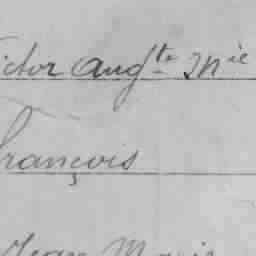 ictor Aug^te M^ie
François
Jean Marie